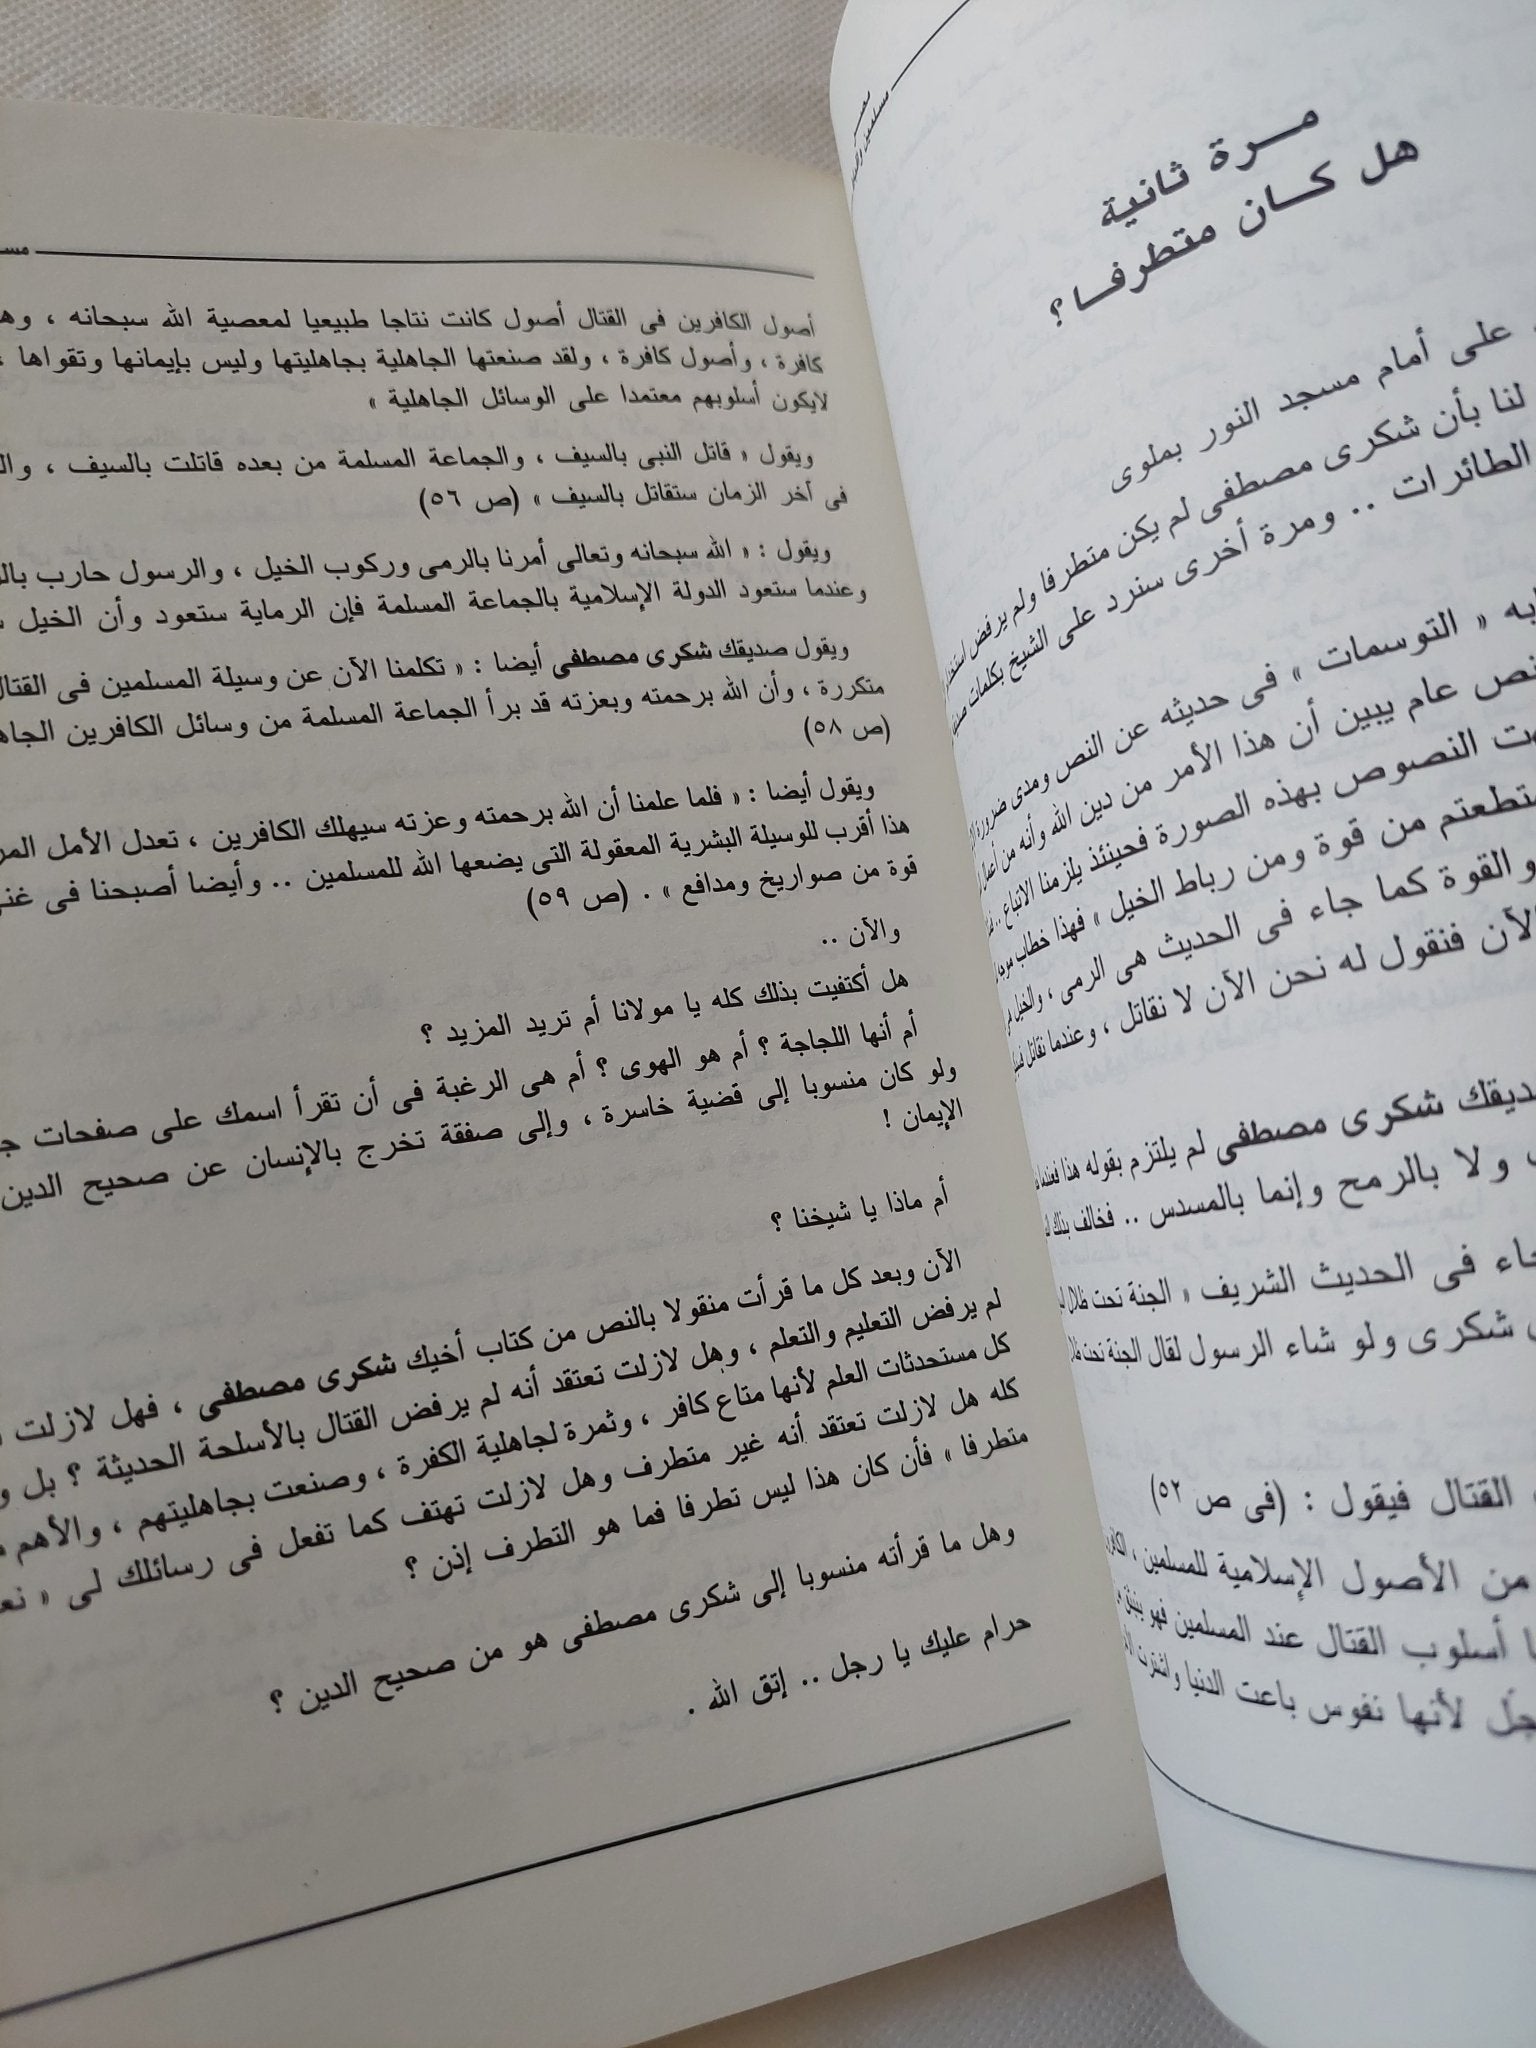 مرة ثانية
هل كان متطرفا؟
على أمام مسجد النور بملوى
لنا بأن شكرى مصطفى لم يكن متطرفا ولم يرفض
الطائرات .. ومرة أخرى سنرد على الشيخ بكلمات
« التوسمات » فى حديثه عن النص ومدى ضرورة
نص عام يبين أن هذا الأمر من دين الله وأنه من
النصوص بهذه الصورة فحينئذ يلزمنا الاتباع ..
من قوة ومن رباط الخيل » فهذا خطاب
والقوة كما جاء فى الحديث هى الرمى ، والخيل
الآن فنقول له نحن الآن لا نقاتل ، وعندما نقاتل
شكرى مصطفى لم يلتزم بقوله هذا
ولا بالرمح وإنما بالمسدس .. فخالف بذلك
فى الحديث الشريف « الجنة تحت ظلال
شكرى ولو شاء الرسول لقال الجنة تحت
القتال فيقول : (فى ص ٥٢)
من الأصول الإسلامية للمسلمين ،
أسلوب القتال عند المسلمين فهو ينبثق
لأنها نفوس باعت الدنيا واشترت
أصول الكافرين فى القتال أصول كانت نتاجا طبيعيا لمعصية الله سبحانه ،
كافرة ، وأصول كافرة ، ولقد صنعتها الجاهلية بجاهليتها وليس بإيمانها وتقواها ،
لايكون أسلوبهم معتمدا على الوسائل الجاهلية »
ويقول « قاتل النبى بالسيف ، والجماعة المسلمة من بعده قاتلت بالسيف ،
فى آخر الزمان ستقاتل بالسيف » (ص ٥٦)
ويقول : « الله سبحانه وتعالى أمرنا بالرمى وركوب الخيل ، والرسول حارب
وعندما ستعود الدولة الإسلامية بالجماعة المسلمة فإن الرماية ستعود وأن الخيل
ويقول صديقك شكرى مصطفى أيضا : « تكلمنا الآن عن وسيلة المسلمين فى القتال
متكررة ، وأن الله برحمته وبعزته قد برأ الجماعة المسلمة من وسائل الكافرين
(ص ٥٨)
ويقول أيضا : « فلما علمنا أن الله برحمته وعزته سيهلك الكافرين ، تعدل الأمل
هذا أقرب للوسيلة البشرية المعقولة التى يضعها الله للمسلمين .. وأيضا أصبحنا فى
قوة من صواريخ ومدافع » . (ص ٥٩)
والآن ..
هل أكتفيت بذلك كله يا مولانا أم تريد المزيد ؟
أم أنها اللجاجة ؟ أم هو الهوى ؟ أم هى الرغبة فى أن تقرأ اسمك على صفحات
ولو كان منسوبا إلى قضية خاسرة ، وإلى صفقة تخرج بالإنسان عن صحيح الدين
الإيمان !
أم ماذا يا شيخنا ؟
الآن وبعد كل ما قرأت منقولا بالنص من كتاب أخيك شكرى مصطفى ، فهل لازلت
لم يرفض التعليم والتعلم ، وهل لازلت تعتقد أنه لم يرفض القتال بالأسلحة الحديثة ؟ بل
كل مستحدثات العلم لأنها متاع كافر ، وثمرة لجاهلية الكفرة ، وصنعت بجاهليتهم ، والأهم
كله هل لازلت تعتقد أنه غير متطرف وهل لازلت تهتف كما تفعل فى رسائلك لى «
متطرفا » فأن كان هذا ليس تطرفا فما هو التطرف إذن ؟
وهل ما قرأته منسوبا إلى شكرى مصطفى هو من صحيح الدين ؟
حرام عليك يا رجل .. إتق الله .